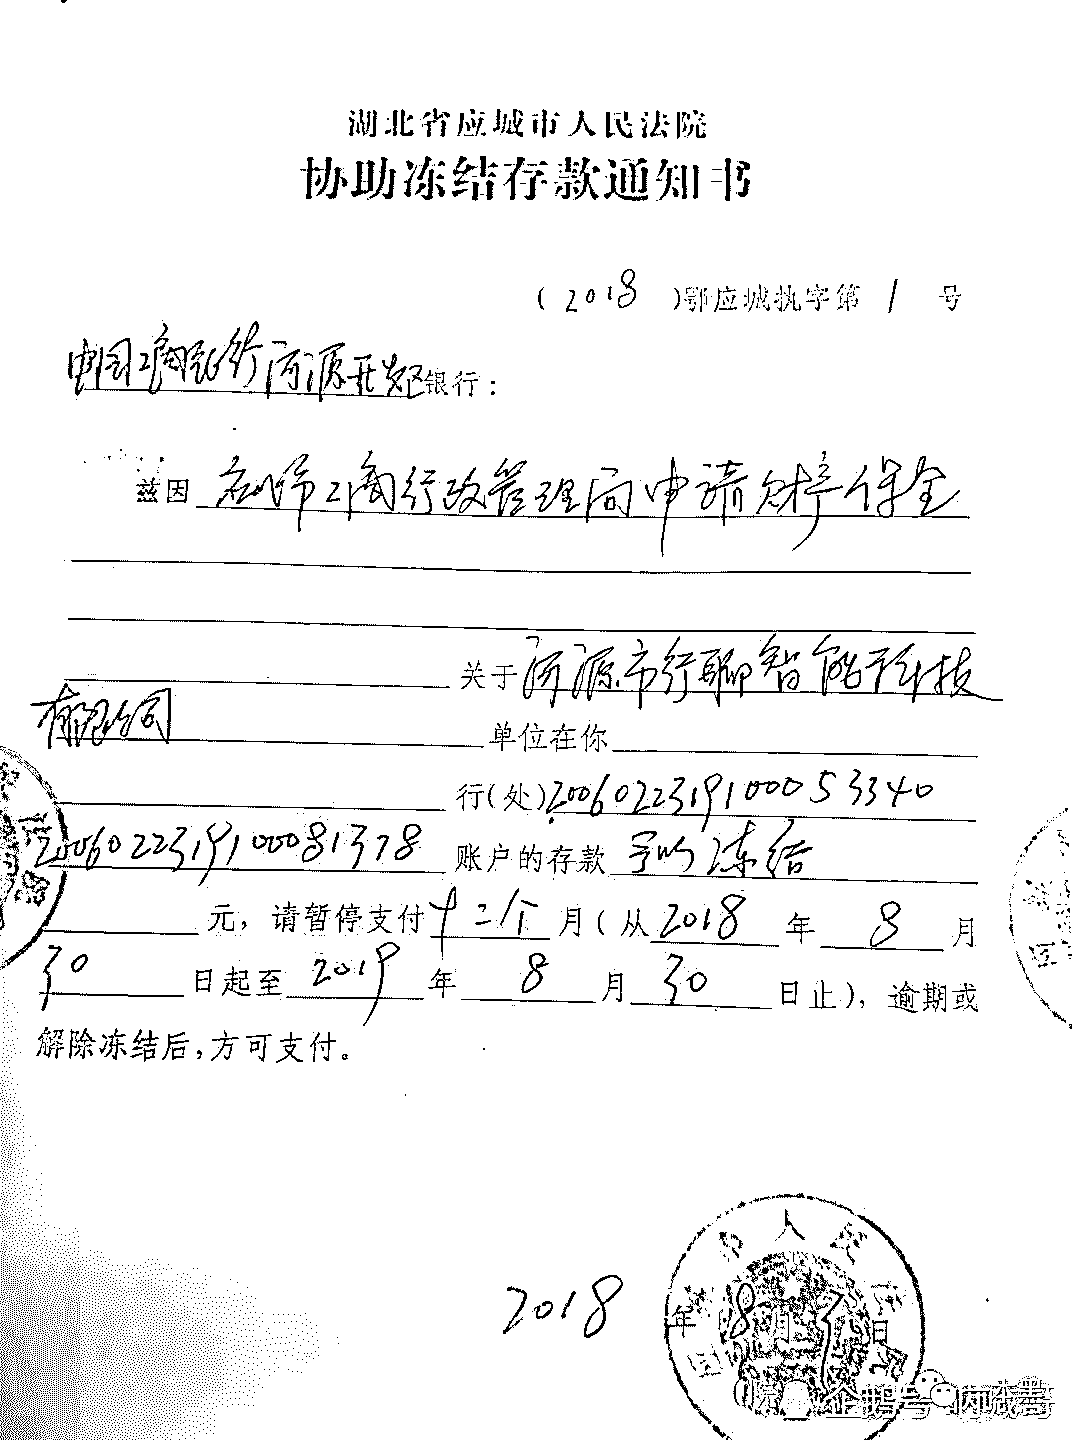 湖北省应城市人民法院
协助冻结存款通知书
(2018)鄂应城执字第1号
中国工商银行河源开发区银行:
兹因应城市工商行政管理局申请财产保全
关于河源市行聊智能科技
有限公司单位在你
行(处)2006022319100053340
2006022319100081378账户的存款予以冻结
元,请暂停支付十二个月(从2018年8月
30日起至2019年8月30日止),逾期或
解除冻结后,方可支付。
市人民法
2018年8月3日
企鹅号